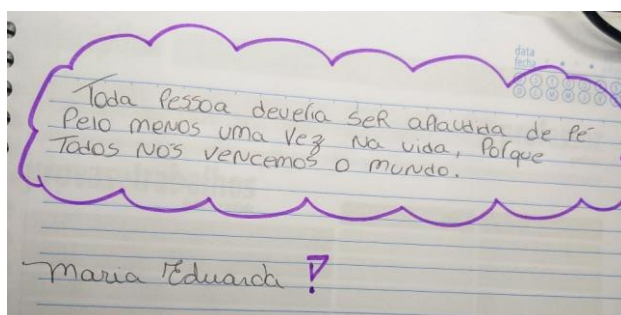 data
fecha
Toda Pessoa deveria ser aplaudida de Pé
Pelo menos uma vez na vida, Porque
Todos nós vencemos o mundo.
Maria Eduarda !